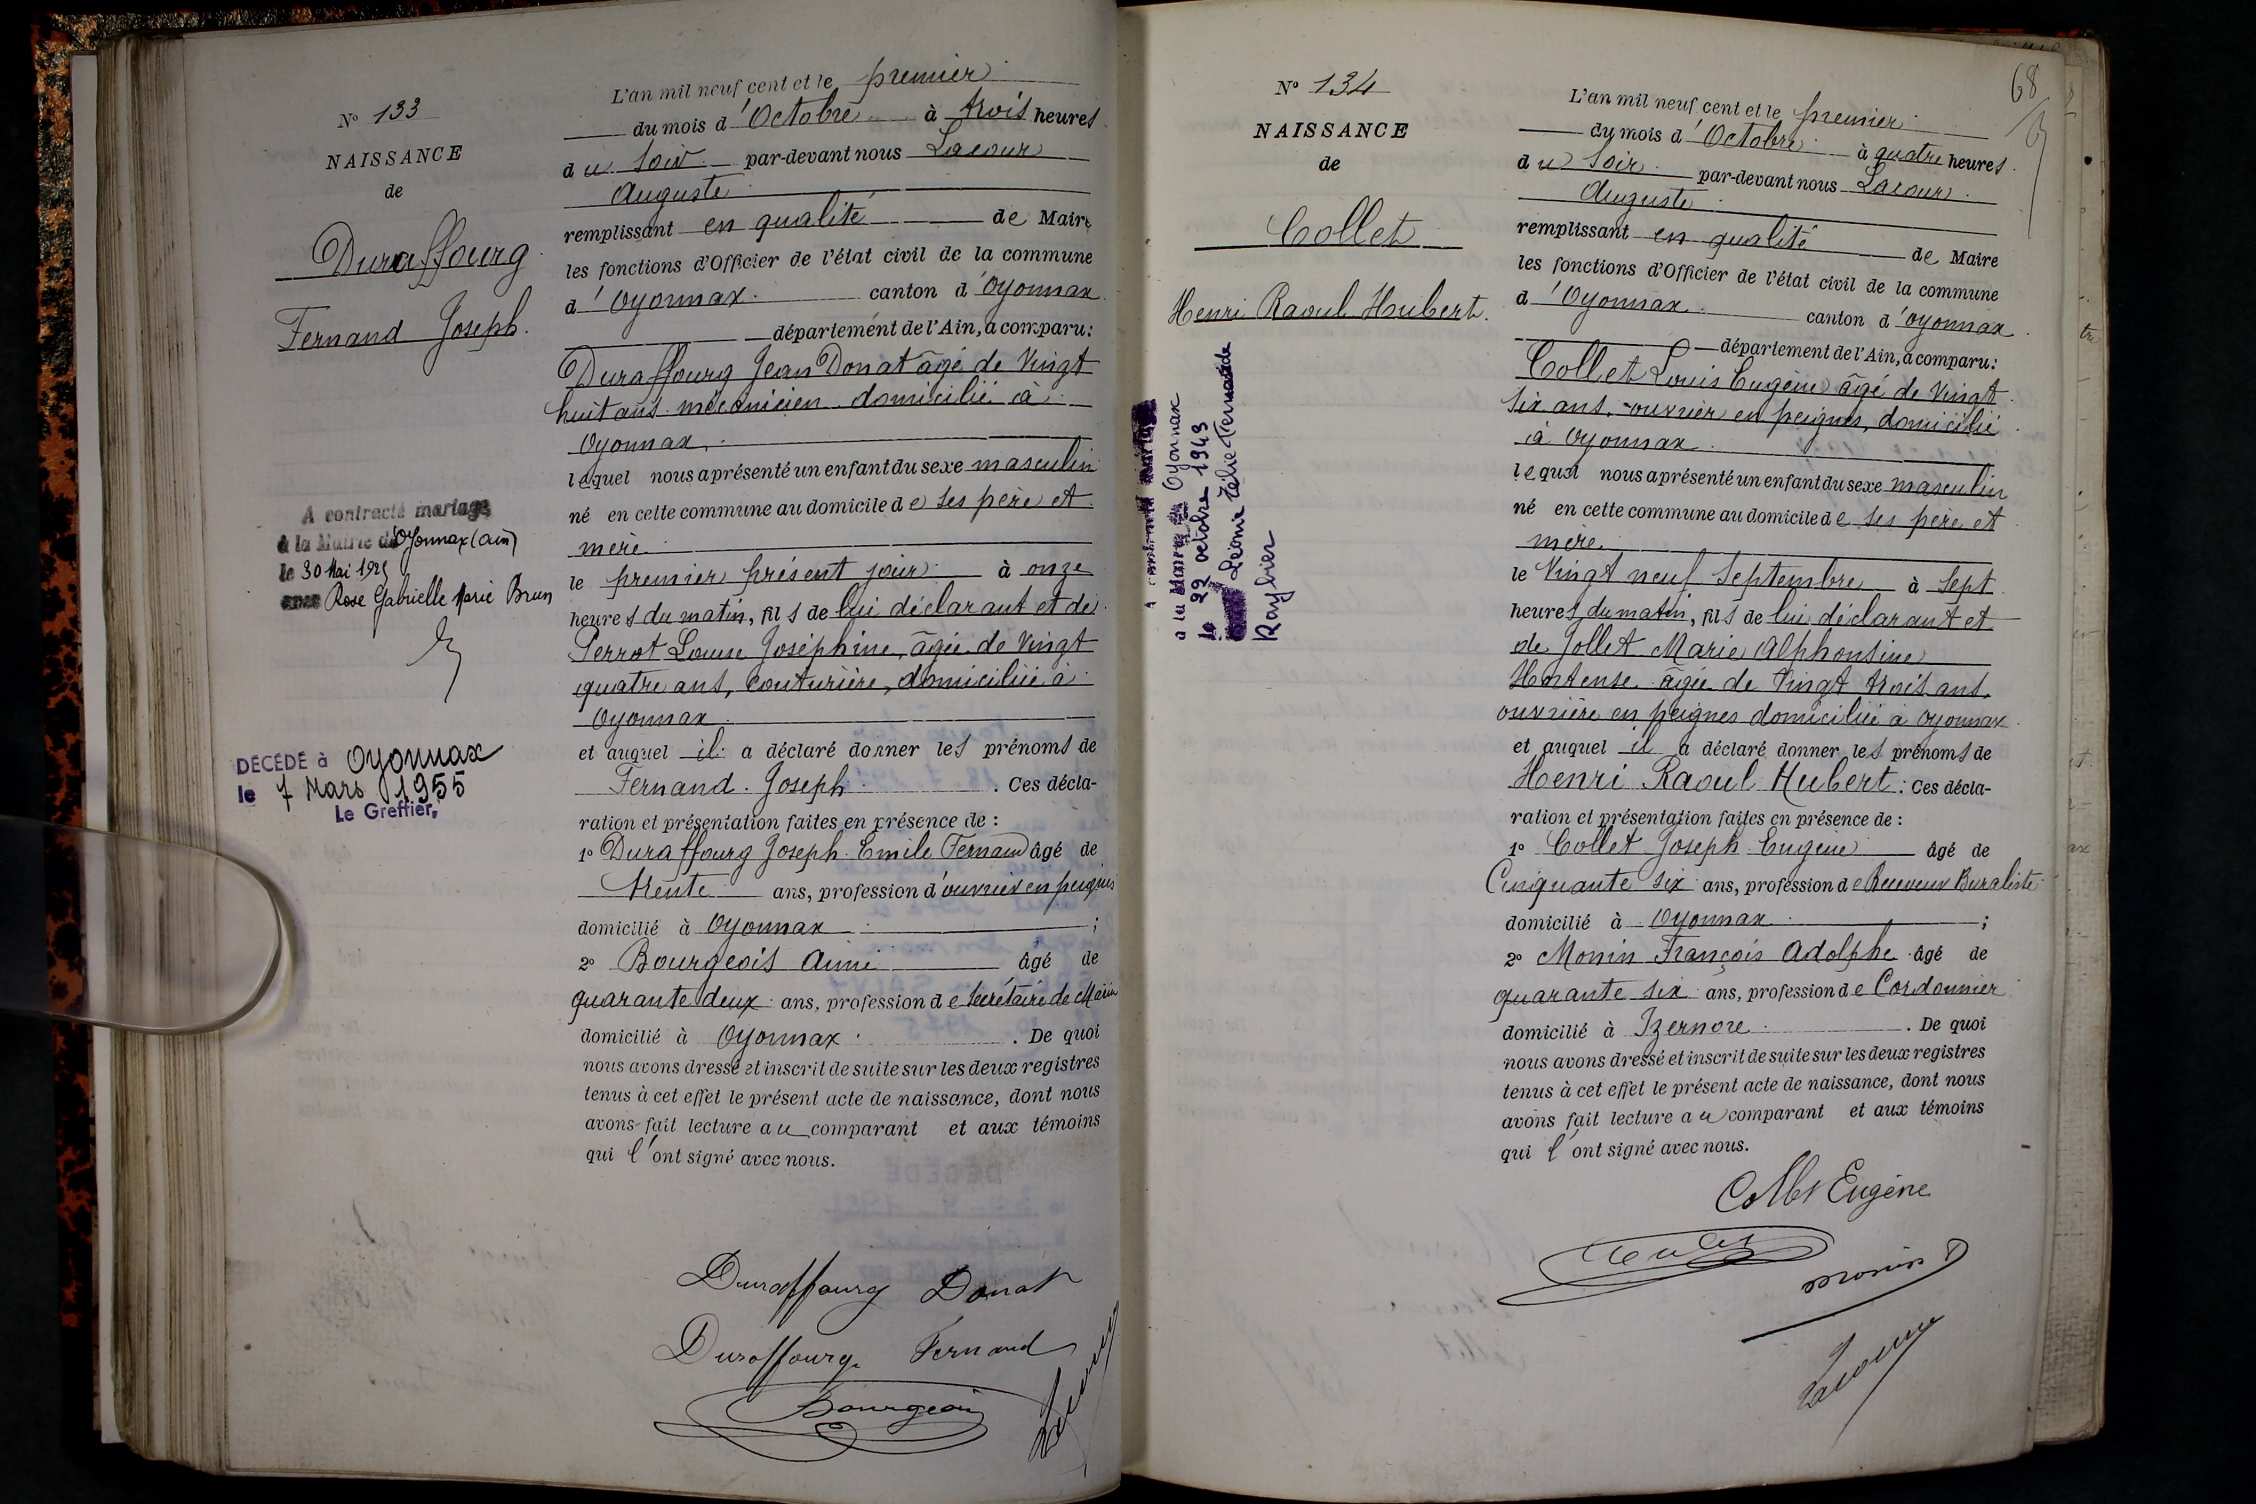 N° 133
NAISSANCE
de
Duraffourg
Fernand Joseph.
A contracté mariage
à la Mairie d'Oyonnax (ain)
le 30 Mai 192
avec Rose Gabrielle Marie Brun
DÉCÉDÉ à Oyonnax
le 7 Mars 1955
Le Greffier,
L'an mil neuf cent et le premier
du mois d'Octobre à trois heures
du soir par-devant nous Lacour
Auguste
remplissant en qualité de Maire
les fonctions d'Officier de l'état civil de la commune
d'Oyonnax canton d'Oyonnax
département de l'Ain, a comparu:
Duraffourg Jean Donat âgé de Vingt
huit ans mécanicien domicilié à
Oyonnax.
lequel nous a présenté un enfant du sexe masculin
né en cette commune au domicile de ses père et
mère
le premier présent jour à onze
heures du matin, fils de lui déclarant et de
Perrot Louise Joséphine, âgée de Vingt
quatre ans, Couturière, domiciliée à
Oyonnax
et auquel il a déclaré donner les prénoms de
Fernand. Joseph. Ces décla-
ration et présentation faites en présence de :
1° Duraffourg Joseph Emile Fernand âgé de
trente ans, profession d'ouvrier en peignes
domicilié à Oyonnax ;
2° Bourgeois Aimé âgé de
quarante deux ans, profession de Secrétaire de Mairie
domicilié à Oyonnax. De quoi
nous avons dressé et inscrit de suite sur les deux registres
tenus à cet effet le présent acte de naissance, dont nous
avons fait lecture au comparant et aux témoins
qui l'ont signé avec nous.
Duraffourg Donat
Duraffourg Fernand
Bourgeois
Lacour
68
N° 134
NAISSANCE
de
Collet
Henri Raoul Hubert.
A contracté mariage
à la Mairie de Oyonnax
le 22 octobre 1943
Léonie Zélie Fernande
Raybier
L'an mil neuf cent et le premier
du mois d'Octobre à quatre heures
du soir par-devant nous Lacour
Auguste
remplissant en qualité de Maire
les fonctions d'Officier de l'état civil de la commune
d'Oyonnax canton d'Oyonnax
département de l'Ain, a comparu:
Collet Louis Eugène âgé de Vingt
six ans, ouvrier en peignes, domicilié
à Oyonnax
lequel nous a présenté un enfant du sexe masculin
né en cette commune au domicile de ses père et
mère.
le Vingt neuf Septembre à sept
heures du matin, fils de lui déclarant et
de Jollet Marie Alphonsine
Hortense âgée de Vingt trois ans,
ouvrière en peignes domiciliée à Oyonnax
et auquel il a déclaré donner les prénoms de
Henri Raoul Hubert. Ces décla-
ration et présentation faites en présence de :
1° Collet Joseph Eugène âgé de
Cinquante six ans, profession de Receveur Buraliste
domicilié à Oyonnax ;
2° Monin François Adolphe âgé de
quarante six ans, profession de Cordonnier
domicilié à Izernore. De quoi
nous avons dressé et inscrit de suite sur les deux registres
tenus à cet effet le présent acte de naissance, dont nous
avons fait lecture au comparant et aux témoins
qui l'ont signé avec nous.
Collet Eugène
Collet
Monin
Lacour